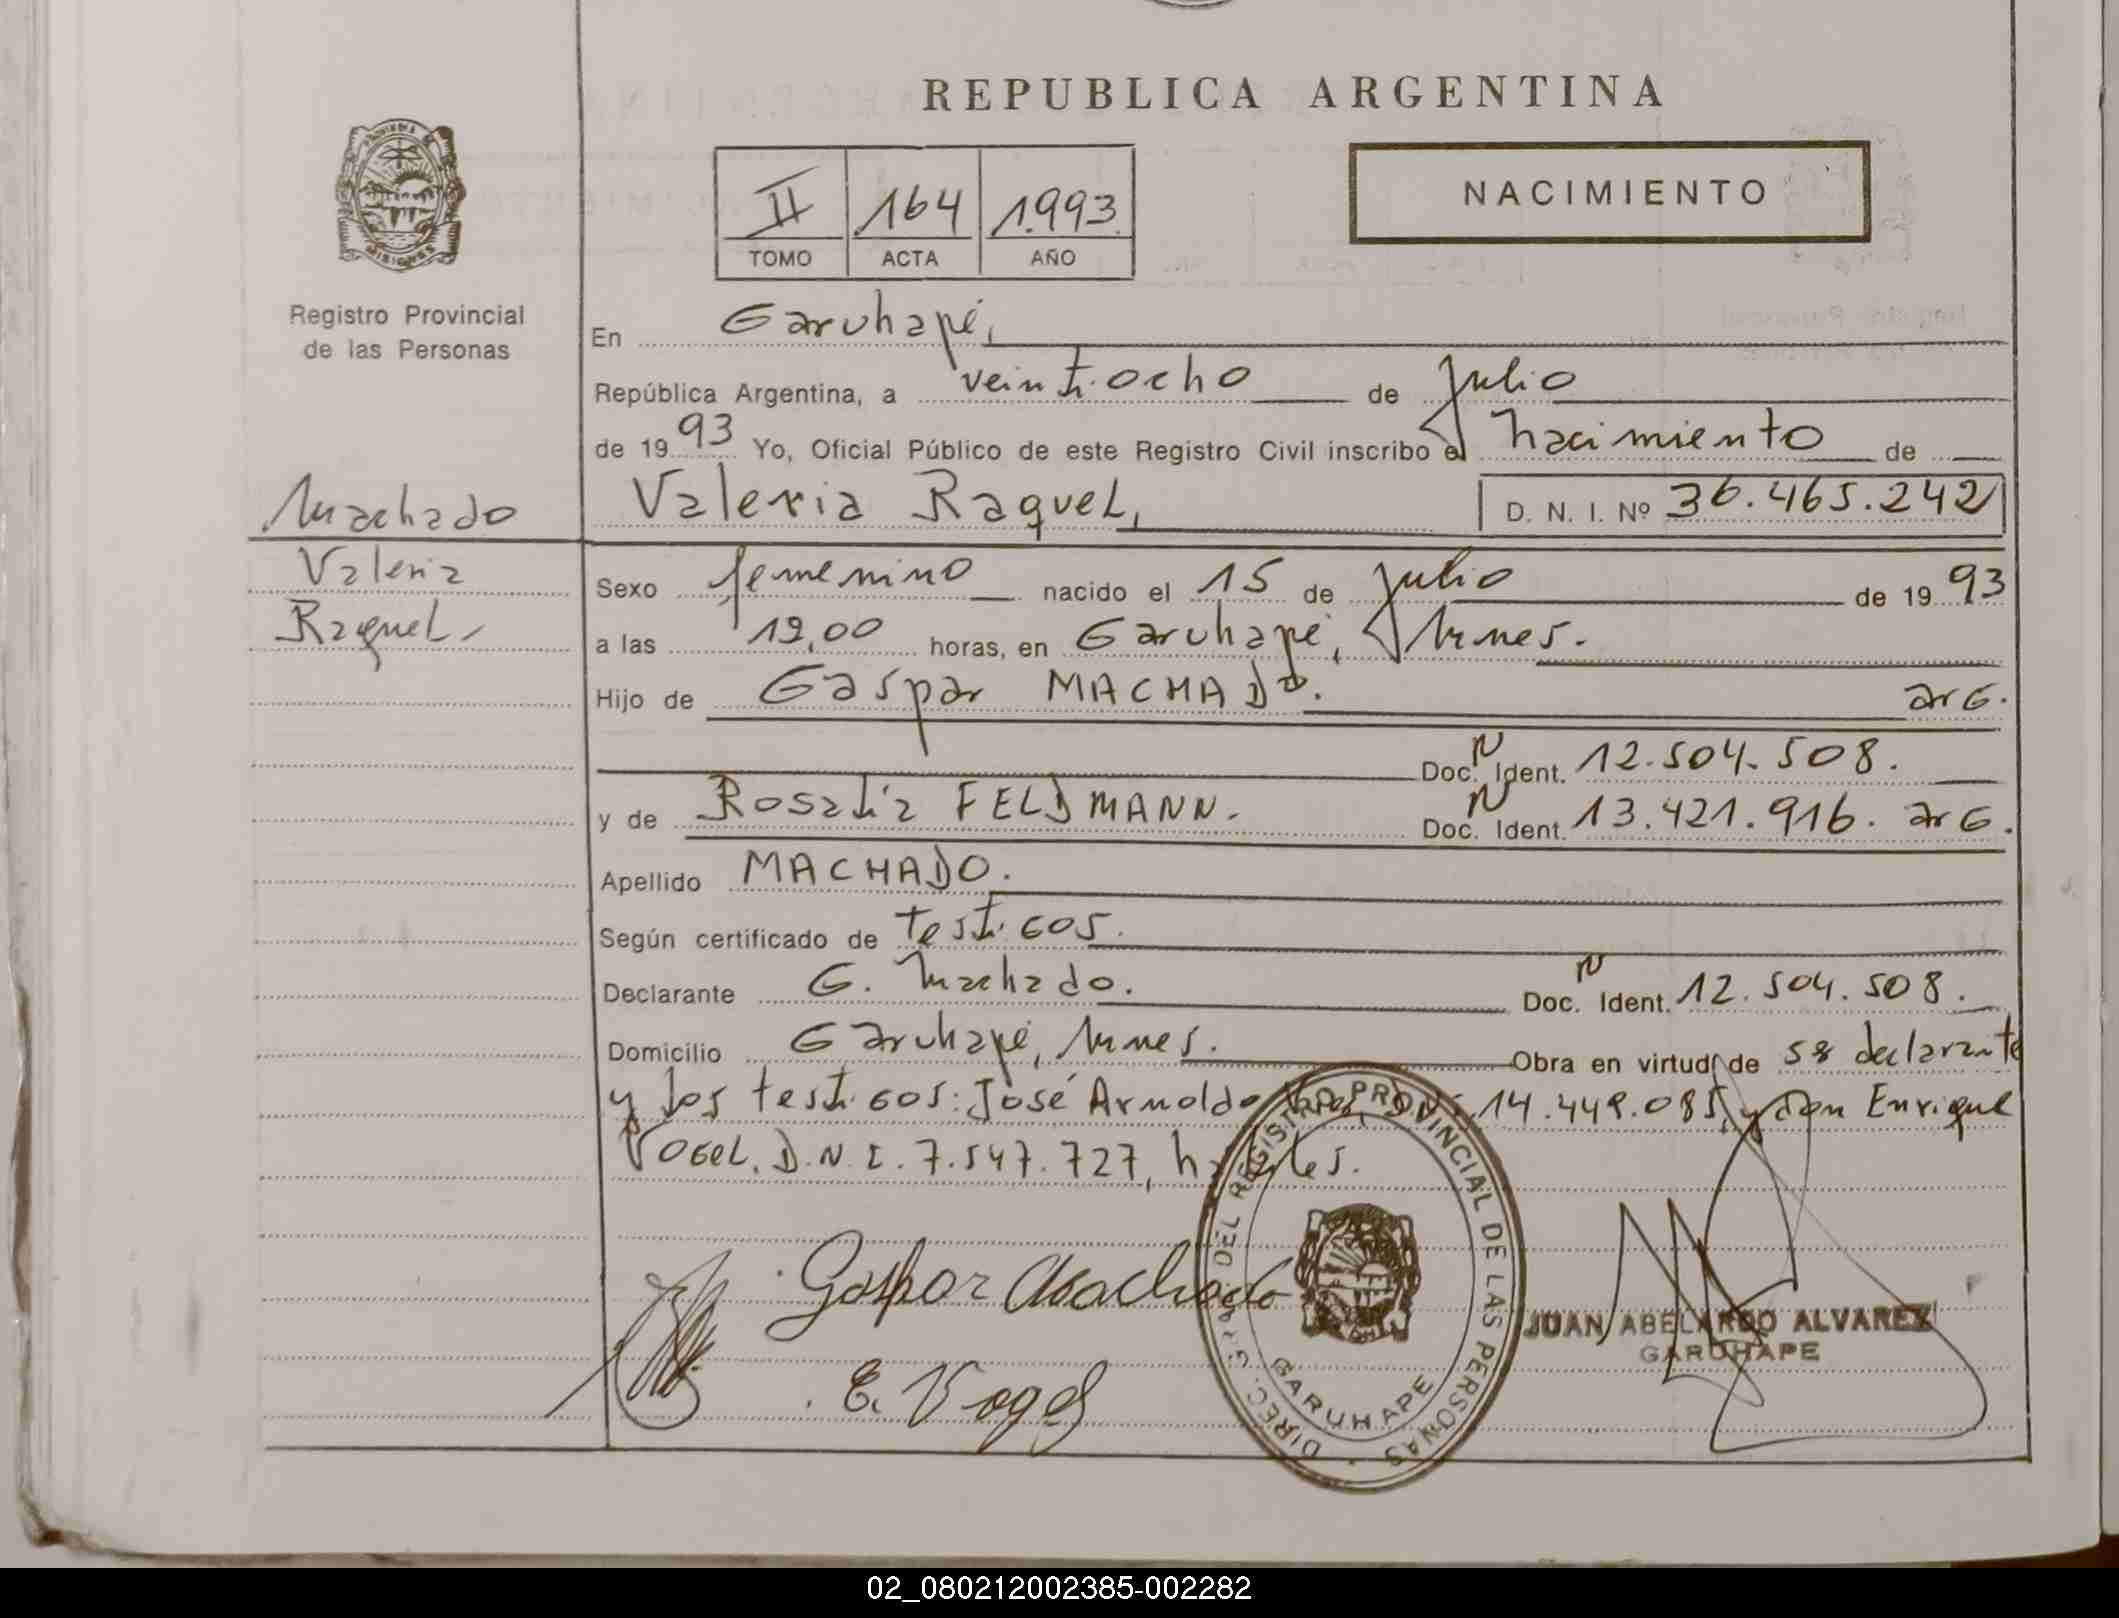 REPUBLICA ARGENTINA
NACIMIENTO
II 164 1.993.
TOMO ACTA AÑO
Registro Provincial
de las Personas
En Garuhapé,
República Argentina, a veintiocho de Julio
de 1993 Yo, Oficial Público de este Registro Civil inscribo el nacimiento de
Machado
Valeria Raquel, D. N. I. Nº 36.465.242
Valeria
Raquel
Sexo femenino nacido el 15 de Julio de 1993
a las 19,00 horas, en Garuhapé, Mnes.
Hijo de Gaspar MACHADO. arG.
Doc. N Ident. 12.504.508.
y de Rosalía FELDMANN. Doc. N Ident. 13.421.916. arG.
Apellido MACHADO.
Según certificado de testigos.
Declarante G. Machado. Doc. N Ident. 12.504.508.
Domicilio Garuhapé, Mnes. Obra en virtud de ser declarante
y los testigos: José Arnoldo 14.449.085, y don Enrique
Vogel, D.N.I. 7.547.727, hábiles.
Gaspar Machado
E. Vogel
DIREC. GRAL. DEL REGISTRO PROVINCIAL DE LAS PERSONAS
GARUHAPE
JUAN ABELARDO ALVAREZ
GARUHAPE
02_080212002385-002282